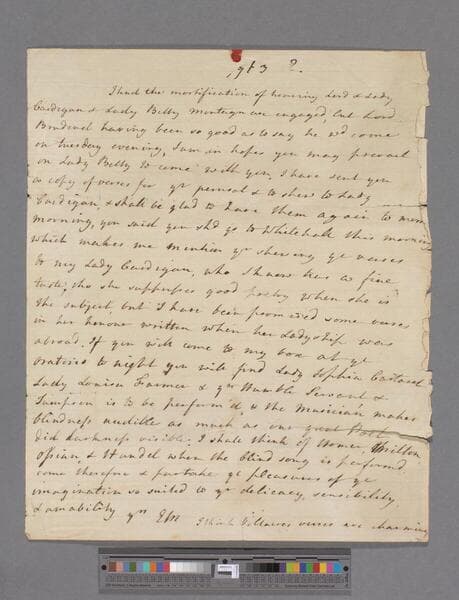 I had the mortification of hearing Lord & Lady
Cardigan & Lady Betty Montagu are engaged, but Lord
Brudenel having been so good as to say he wd come
on Tuesday evening, I am in hopes you may prevail
on Lady Betty to come with you, I have sent you
a copy of verses for yr perusal & to shew to Lady
Cardigan, & shall be glad to have them again to morrow
morning, you said you shd go to Whitehall this morning
which makes me mention yr shewing ye verses
to my Lady Cardigan, who I know has a fine
taste; she suppresses good poetry when she is
the subject, but I have been promised some verses
in her honour written when her Ladyship was
abroad. If you will come to my box at ye
oratorio to night you will find Lady Sophia Carteret
Lady Louisa Farmer & yr Humble Servant &
Sampson is to be perform'd, & the Musician makes
blindness audible as much as our great Poet
did darkness visible. I shall think of Homer, Milton
Ossian, & Handel when the blind song is perform'd
come therefore & partake ye pleasures of ye
imagination so suited to yr delicacy, sensibility,
& amability yrs EM I think Villiers verses are charming